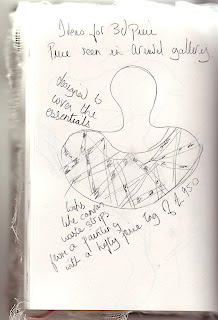 Ideas for 3d Piece
Piece seen in Arundel gallery
designed to
cover the
essentials
looks
like canvas
waste strips
from a painting
with a hefty price tag of £950